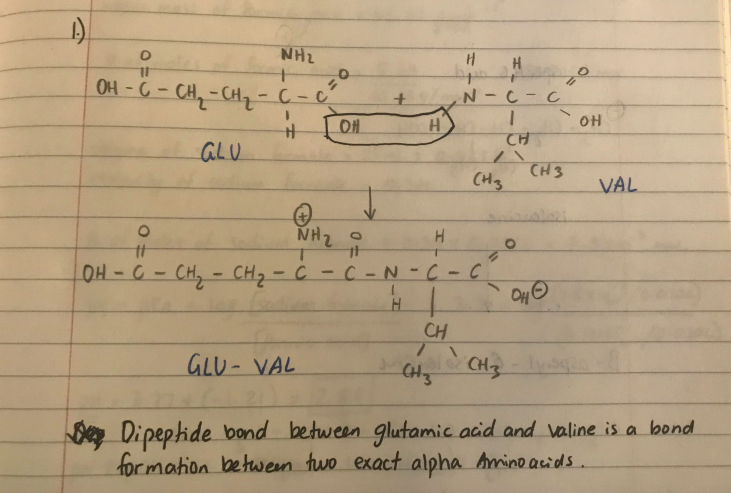 1.)
NH₂
H H
O O O
OH - C - CH₂ - CH₂ - C - C + N - C - C
H OH H CH OH
GLU CH₃ CH₃ VAL
⊕
NH₂ O H
O O
OH - C - CH₂ - CH₂ - C - C - N - C - C
H OH⊖
CH
GLU - VAL CH₃ CH₃
Dipeptide bond between glutamic acid and valine is a bond
formation between two exact alpha Amino acids.